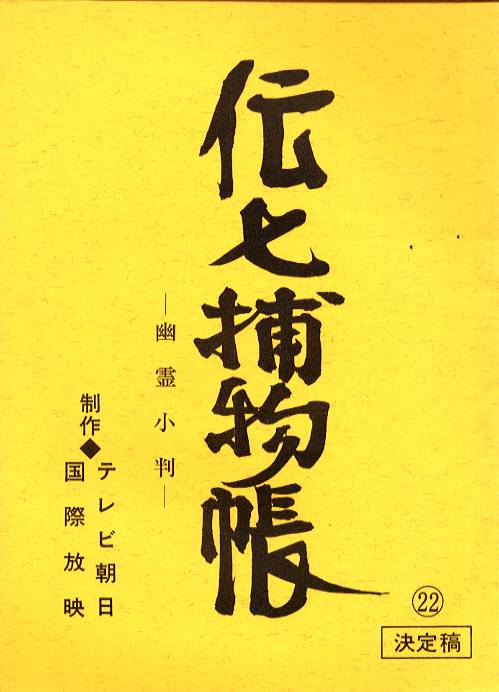 伝七捕物帳
―幽霊小判―
制作◆
テレビ朝日
国際放映
㉒
決定稿